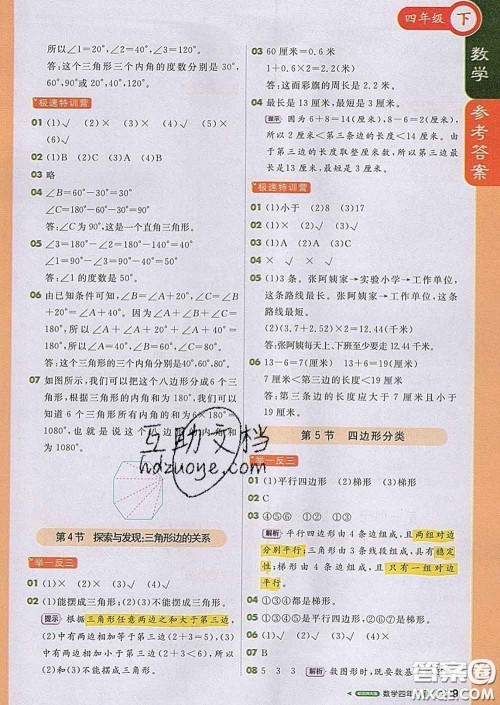 四年级 下
数学
参考答案
所以∠1=20°,∠2=40°,∠3=120°。
答:这三角形三个内角的度数分别是 30°,60°,90°或 20°,40°,120°。
极速特训营
01 (1)(√) (2)× (3)√ (4)√ (5)√
(6)√
02 (1)B (2)C (3)A (4)B
03 略
04 ∠B=60°-30°=30°
∠C=180°-60°-30°=90°
答:∠C为 90°,这是一个直角三角形。
05 ∠2=180°-90°-50°=40°
∠1=180°-90°-40°=50°
答:∠1的度数是 50°。
06 由已知条件可知,∠B=∠A+20°,∠C=
∠B+20°=∠A+40°。因为∠A+∠B+∠C=
180°,∠A+∠A+20°+∠A+20°+20°=
180°,所以∠A=40°,∠B=60°,∠C=80°。
答:这个三角形的三个内角分别是40°,60°,80°。
07 如图所示,我们可以把这个八边形分成 6 个三
角形。根据三角形的内角和为 180°,我们可以
知道 6 个三角形所有内角的和为 180°×6=
1080°,也就是说这个八边形的内角和
为 1080°。
第 4 节 探索与发现:三角形边的关系
举一反三
01 (1)√ (2)√ (3)√
02 (1)能摆成三角形。(2)(3)不能摆成三角形。
提示 根据三角形任意两边之和大于第三边,
(2)中有两边相加等于第三边(2+3=5),(3)
中有两边相加小于第三边(2+3<6),所以
(2)(3)不能摆成三角形。
03 60 厘米=0.6 米
1+0.6×2=2.2(米)
答:这面彩旗的周长是 2.2 米。
04 最长是 13 厘米,最短是 3 厘米。
提示 因为 6+8=14(厘米),8-6=2(厘米),
所以 2 厘米<第三条边的长度<14 厘米。由于
第三边的长度取整厘米数,所以第三边最
长是 13 厘米,最短是 3 厘米。
极速特训营
01 (1)小于 (2)8 (3)17
02 (1)× (2)√
03 (1)A (2)A (3)C
04 × √ × √
05 (1)3 条。张阿姨家→实验小学→工作单位,
这条路线最长。张阿姨家→工作单位,这条
路线最短。
(2)(3.7+2.52)×2=12.44(千米)
答:张阿姨每天上、下班至少要走 12.44 千米。
06 13-6=7(厘米) 13+6=19(厘米)
7 厘米<第三边的长度<19 厘米
答:第三条边的长度应大于 7 厘米且小于
19 厘米。
第 5 节 四边形分类
举一反三
01 (1)平行四边形 (2)梯形 (3)梯形
02 C
03 ④⑤⑥ ①② ③
解析 平行四边形由 4 条边组成,且两组对边
分别平行;三角形由 3 条线段组成,具有稳定
性;梯形由 4 条边组成,且只有一组对边
平行。
04 ①③④都是梯形。
05 ①②③④都是平行四边形。
07 B
08 5 3 3 解析 数图形时,既要数基
互助文档
hdzuoye.com
数学四年
9
答案